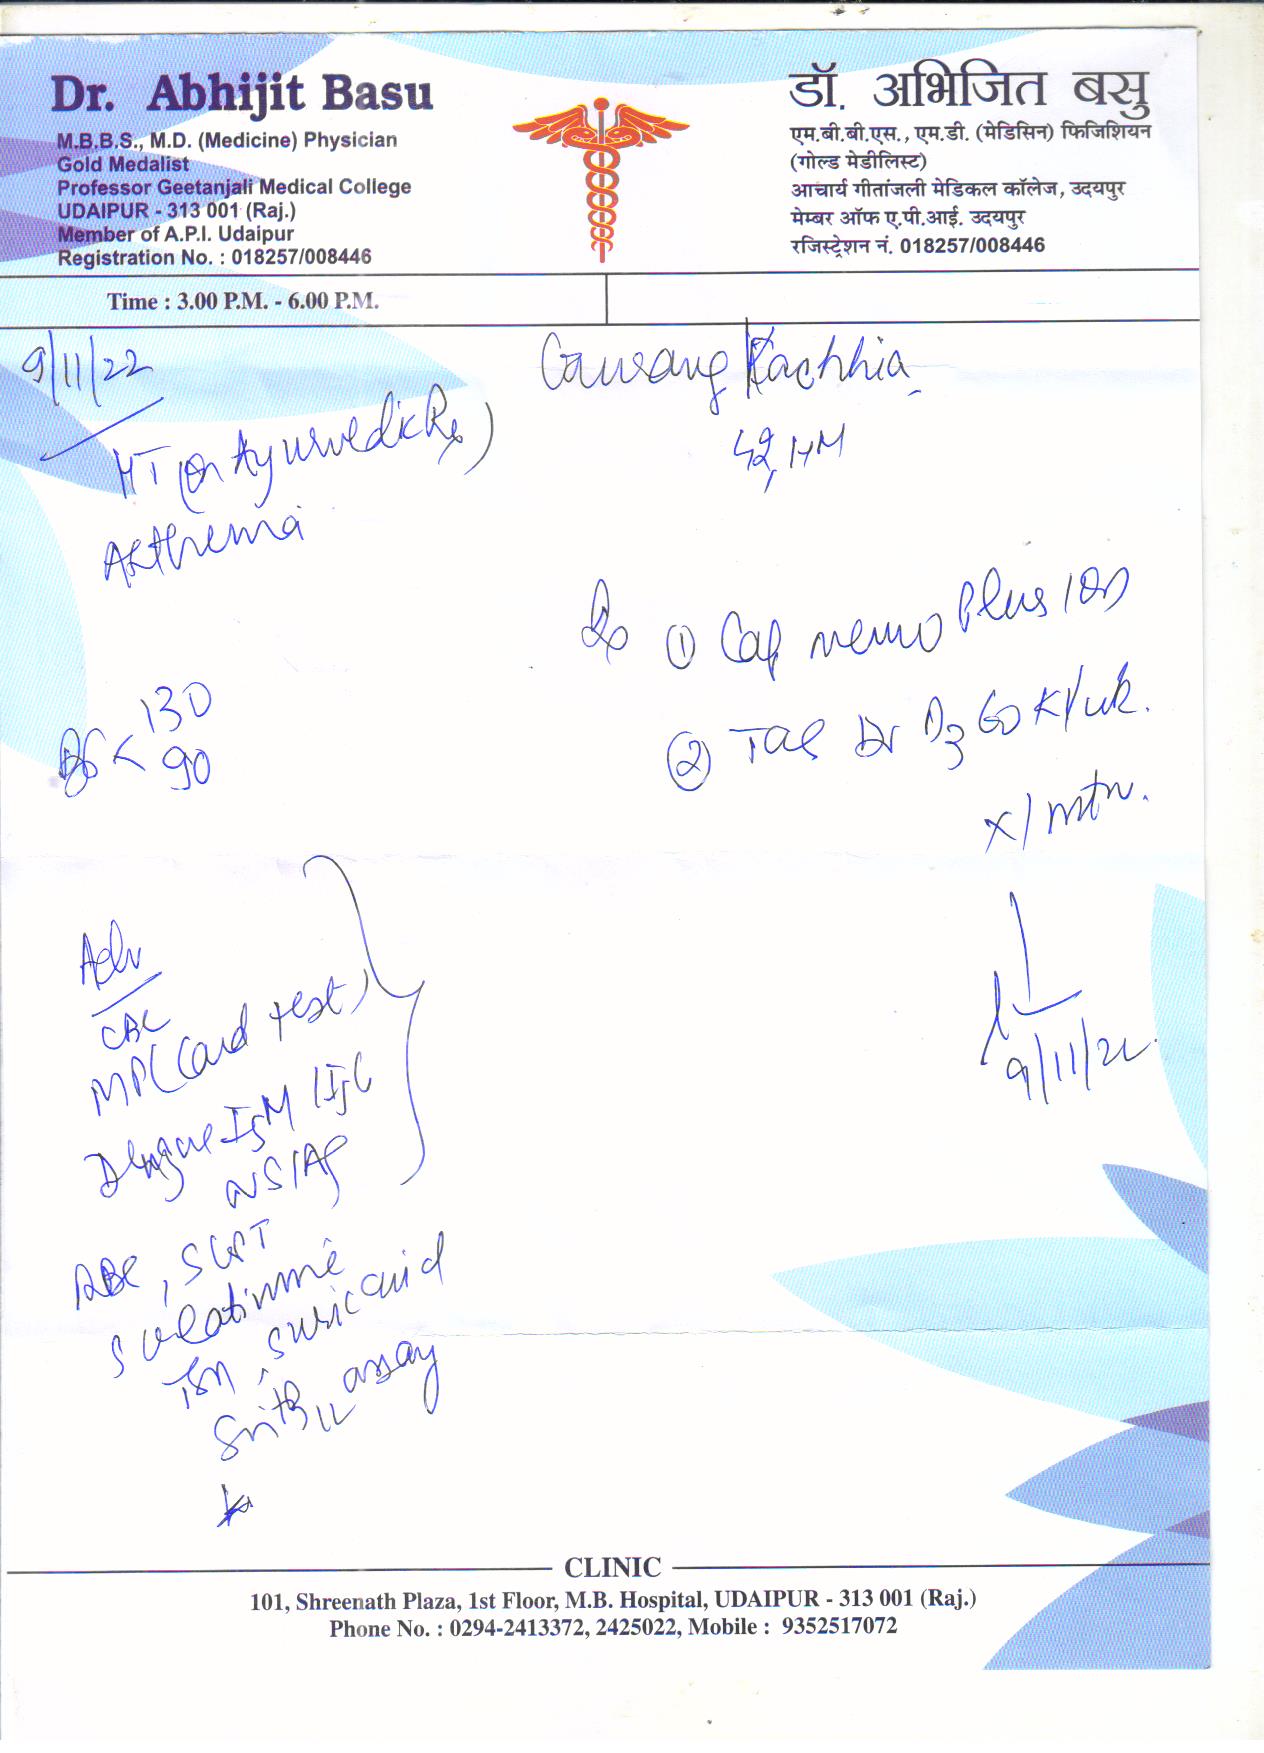 Dr. Abhijit Basu
M.B.B.S., M.D. (Medicine) Physician
Gold Medalist
Professor Geetanjali Medical College
UDAIPUR - 313 001 (Raj.)
Member of A.P.I. Udaipur
Registration No. : 018257/008446
डॉ. अभिजित बसु
एम.बी.बी.एस., एम.डी. (मेडिसिन) फिजिशियन
(गोल्ड मेडीलिस्ट)
आचार्य गीतांजली मेडिकल कॉलेज, उदयपुर
मेम्बर ऑफ ए.पी.आई. उदयपुर
रजिस्ट्रेशन नं. 018257/008446
Time : 3.00 P.M. - 6.00 P.M.
9/11/22
Kachhia
42, HM
HT (on Ayurvedic Rx)
Rx ① Cap Plus 1 OD
② Tab D3 60K/wk.
130
90
Adv
CBC
MP (Card test)
Dengue IgM / IgG
NS1Ag
RBS, SGPT
S creatinine
TSH, S uric acid
S vit B12 assay
9/11/22
CLINIC
101, Shreenath Plaza, 1st Floor, M.B. Hospital, UDAIPUR - 313 001 (Raj.)
Phone No. : 0294-2413372, 2425022, Mobile : 9352517072